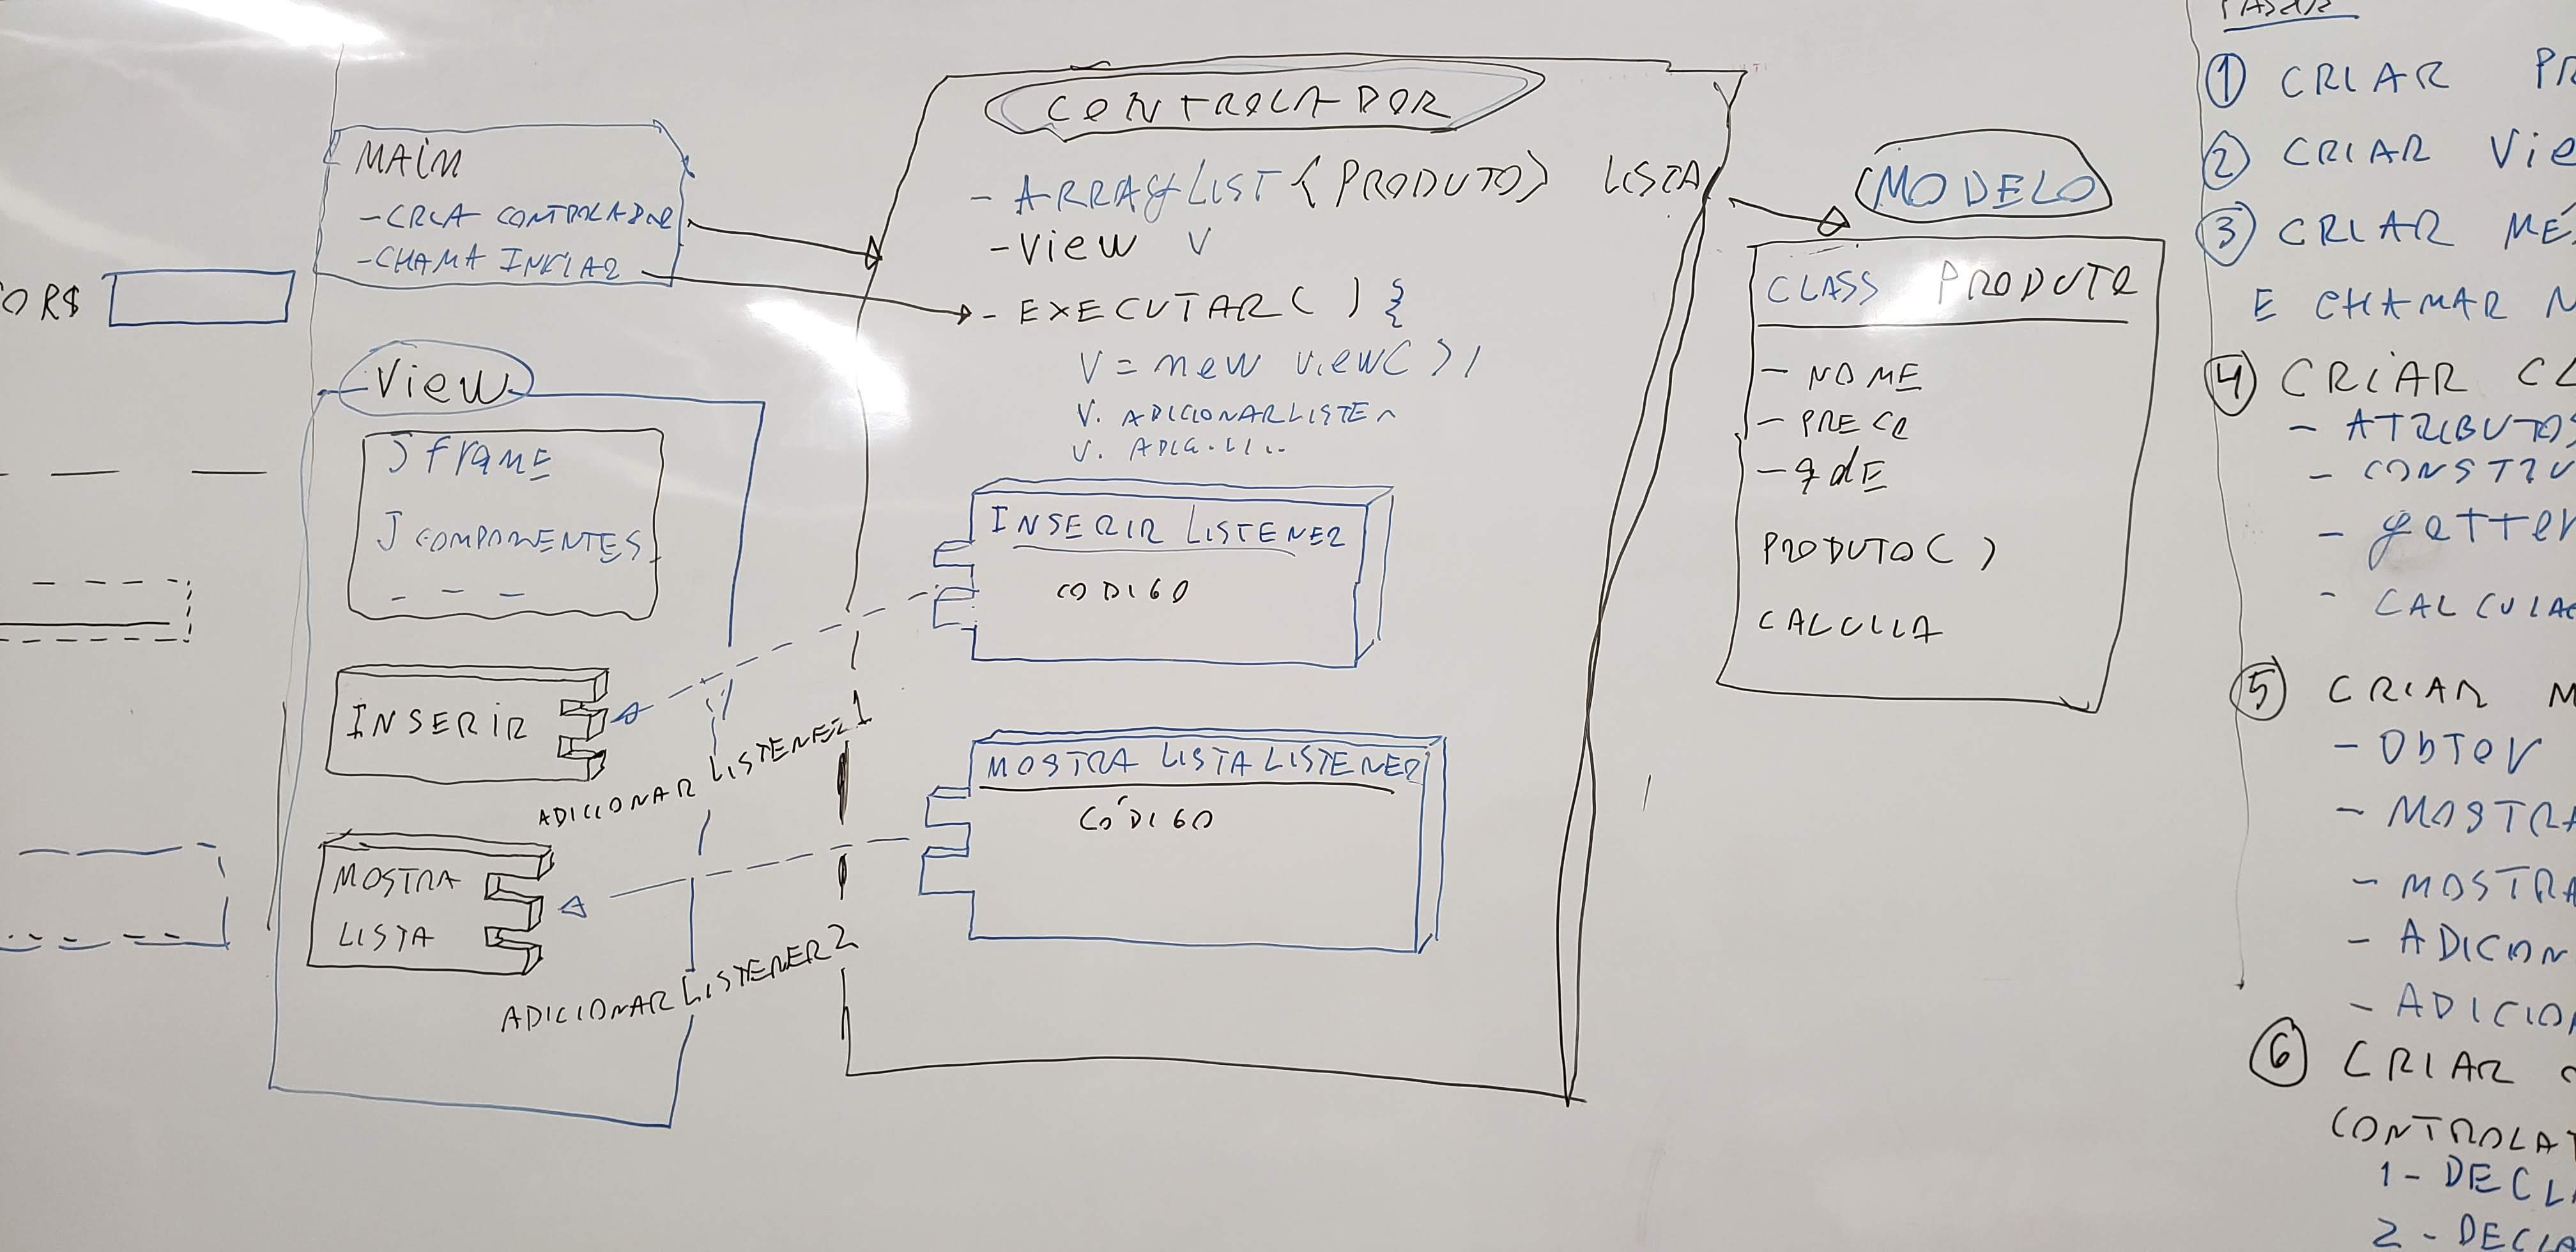 OR$
MAIN
- CRIA CONTROLADOR
- CHAMA INICIAR
View
JFRAME
J COMPONENTES
- - -
INSERIR
ADICIONAR LISTENER1
MOSTRA
LISTA
ADICIONAR LISTENER2
CONTROLADOR
- ARRAYLIST <PRODUTO> LISTA
- View V
- EXECUTAR ( ) {
V = new view( );
V. ADICIONARLISTEN
V. ADIC.LI..
INSERIR LISTENER
CODIGO
MOSTRA LISTA LISTENER
CÓDIGO
MODELO
CLASS PRODUTO
- NOME
- PRECO
- qdE
PRODUTO( )
CALCULA
① CRIAR PR
② CRIAR Vie
③ CRIAR MÉ
E CHAMAR N
④ CRIAR CL
- ATRIBUTOS
- CONSTRU
- getter
- CALCULA
⑤ CRIAR M
- Obter
- MOSTRA
- MOSTRA
- ADICION
- ADICIO
⑥ CRIAR
CONTROLA
1 - DECLA
2 - DECLA